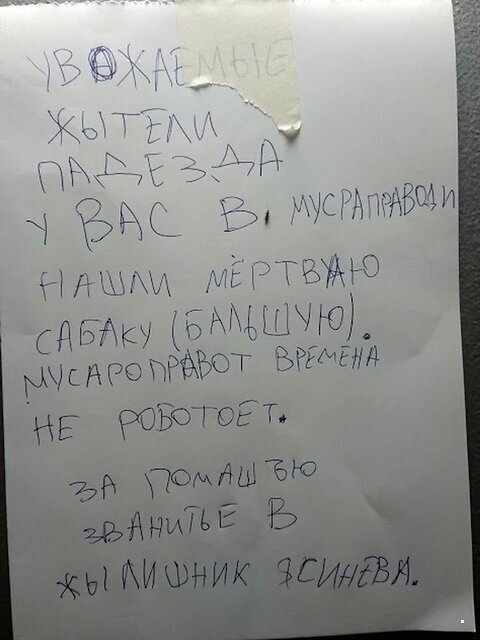 УВАЖАЕМЫЕ
ЖЫТЕЛИ
ПАДЕЗДА
У ВАС В МУСРАПРАВОДИ
НАШЛИ МЁРТВУЮ
САБАКУ (БАЛЬШУЮ).
МУСАРОПРАВОТ ВРЕМЕНА
НЕ РОБОТОЕТ.
ЗА ПОМАШЬЮ
ЗВАНИТЬЕ В
ЖЫЛИШНИК ЯСИНЕВА.